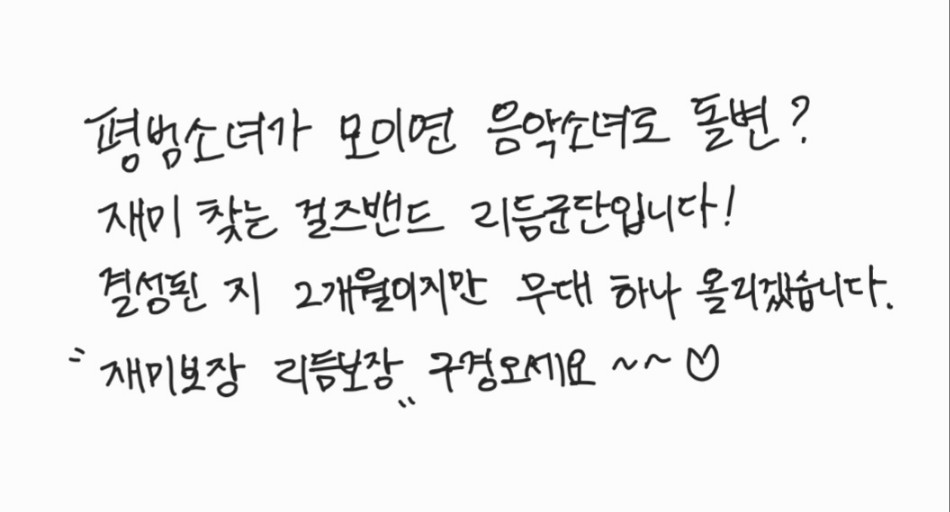 평범소녀가 모이면 음악소녀로 돌변?
재미 찾는 걸즈밴드 리듬군단입니다!
결성된 지 2개월이지만 무대 하나 올리겠습니다.
"재미보장 리듬보장" 구경오세요 ~~♡